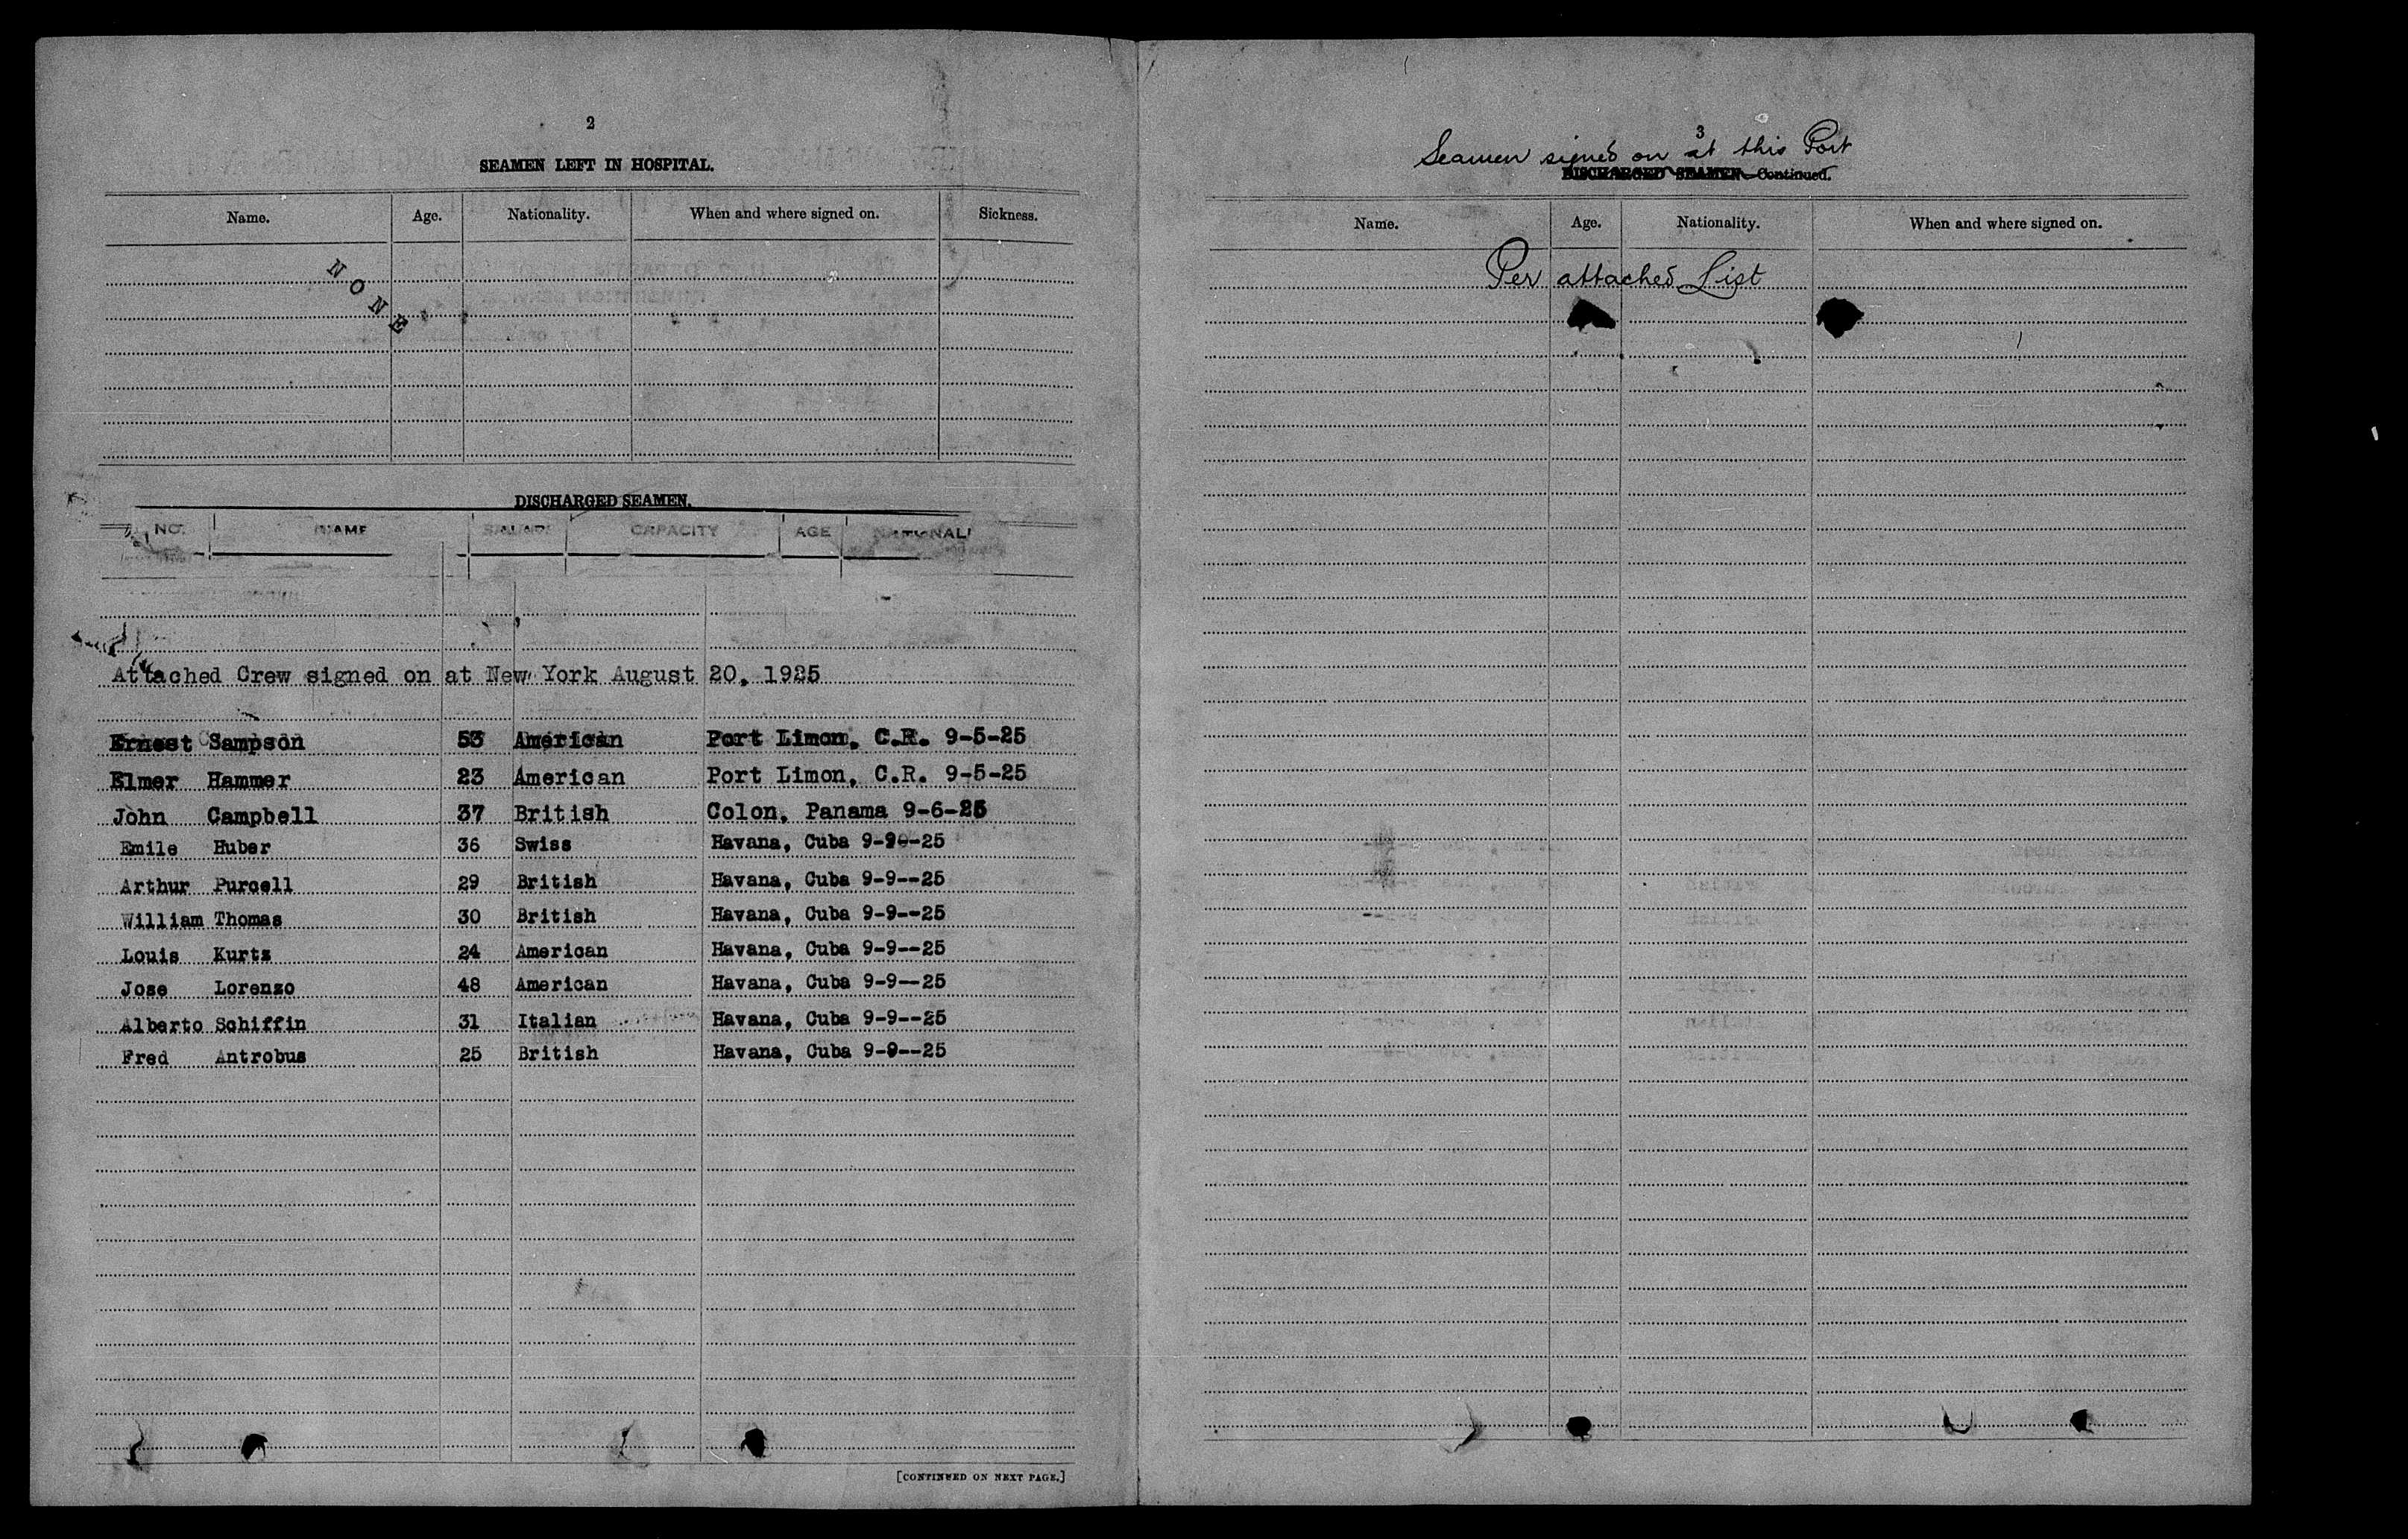 2
SEAMEN LEFT IN HOSPITAL.
Name. Age. Nationality. When and where signed on. Sickness.
NONE
DISCHARGED SEAMEN.
NO. NAME SALARY CAPACITY AGE NATIONALI
Attached Crew signed on at New York August 20, 1925
Ernest Sampson 53 American Port Limon, C.R. 9-5-25
Elmer Hammer 23 American Port Limon, C.R. 9-5-25
John Campbell 37 British Colon, Panama 9-6-25
Emile Huber 36 Swiss Havana, Cuba
Arthur Purcell 29 British Havana, Cuba 9-9--25
William Thomas 30 British Havana, Cuba 9-9--25
Louis Kurtz 24 American Havana, Cuba 9-9--25
Jose Lorenzo 48 American Havana, Cuba 9-9--25
Alberto Schiffin 31 Italian Havana, Cuba 9-9--25
Fred Antrobus 25 British Havana, Cuba 9-9--25
[CONTINUED ON NEXT PAGE.]
3
Seamen signed on at this Port
DISCHARGED SEAMEN—Continued.
Name. Age. Nationality. When and where signed on.
Per attached List